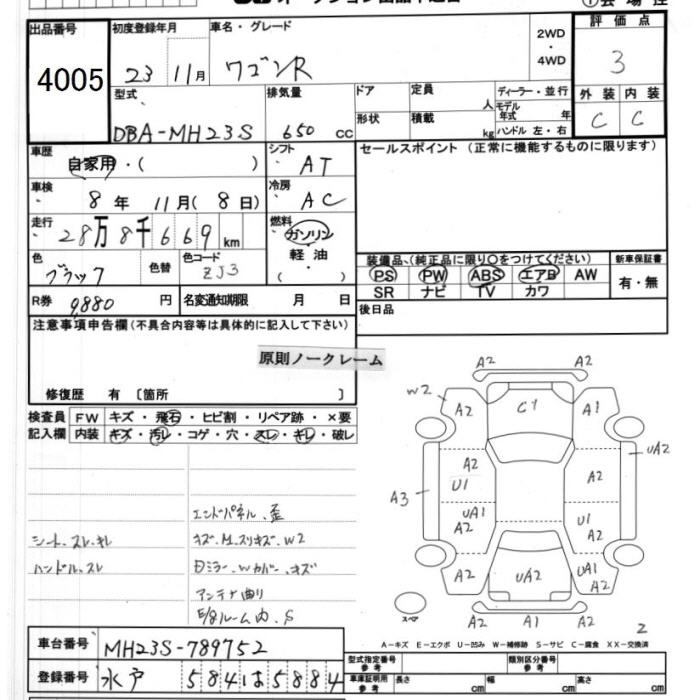 出品番号
4005
初度登録年月
23 11月
車名・グレード
ワゴンR
2WD
・
4WD
評価点
3
外装 内装
C C
型式
DBA-MH23S
排気量
650 cc
ドア
形状
定員
人
積載
kg
ディーラー・並行
モデル
年式 年
ハンドル 左・右
車歴
自家用・( )
シフト
AT
セールスポイント (正常に機能するものに限ります)
車検
8年 11月(8日)
冷房
AC
走行
28万8千669km
燃料
ガソリン
軽油
・( )
色
ブラック
色替
色コード
ZJ3
装備品、(純正品に限り〇をつけてください)
PS PW ABS エアB AW
SR ナビ TV カワ
新車保証書
有・無
R券 9,880 円
名変通知期限 月 日
後日品
注意事項申告欄(不具合内容等は具体的に記入して下さい)
原則ノークレーム
修復歴 有 〔箇所 〕
検査員
記入欄
FW キズ・飛石・ヒビ割・リペア跡・×要
内装 キズ・汚レ・コゲ・穴・スレ・キレ・破レ
エンドパネル、歪
シート、スレ、キレ
キズ、M、スリキズ、W2
ハンドル、スレ
Dミラー、Wカバー、キズ
アンテナ曲り
E/gルーム内、S
A2 A2
W2 A2 C1 A1
UA2
A2 A2
U1
A3
UA1 U1
A2 A2
A2 UA2 UA1
A2
スペア
A2 A1 A2
2
A-キズ E-エクボ U-凹み W-補修跡 S-サビ C-腐食 XX-交換済
車台番号 MH23S-789752
登録番号 水戸 584 は 5884
型式指定番号
参考
類別区分番号
参考
車庫証明用
参考
長さ cm 幅 cm 高さ cm